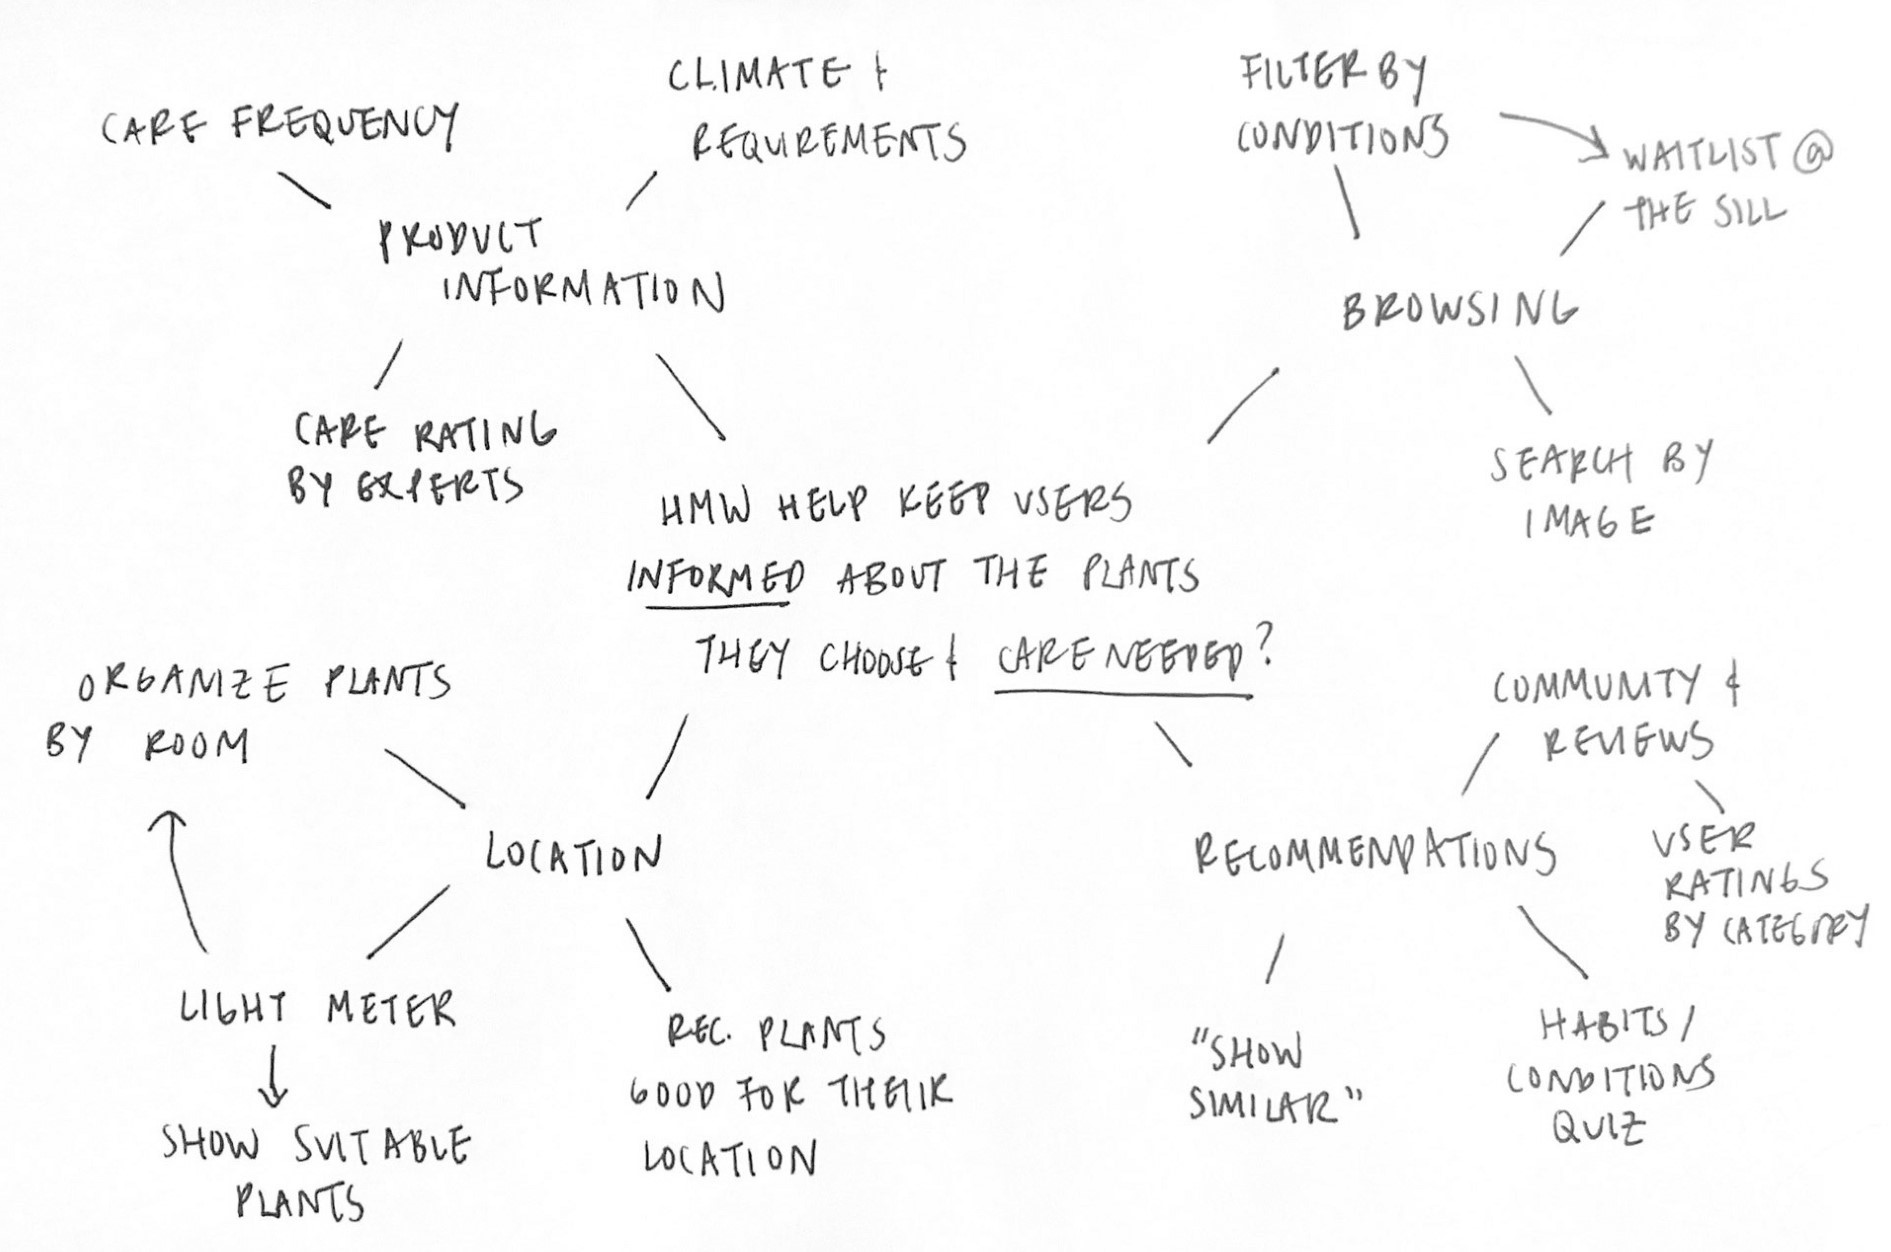 CARE FREQUENCY
CLIMATE &
REQUREMENTS
PRODUCT
INFORMATION
CARE RATING
BY EXPERTS
FILTER BY
CONDITIONS
WAITLIST @
THE SILL
BROWSING
SEARCH BY
IMAGE
HMW HELP KEEP USERS
INFORMED ABOUT THE PLANTS
THEY CHOOSE & CARE NEEDED?
ORGANIZE PLANTS
BY ROOM
LOCATION
LIGHT METER
SHOW SUITABLE
PLANTS
REC. PLANTS
GOOD FOR THEIR
LOCATION
COMMUNITY &
REVIEWS
RECOMMENDATIONS
USER
RATINGS
BY CATEGORY
"SHOW
SIMILAR"
HABITS/
CONDITIONS
QUIZ